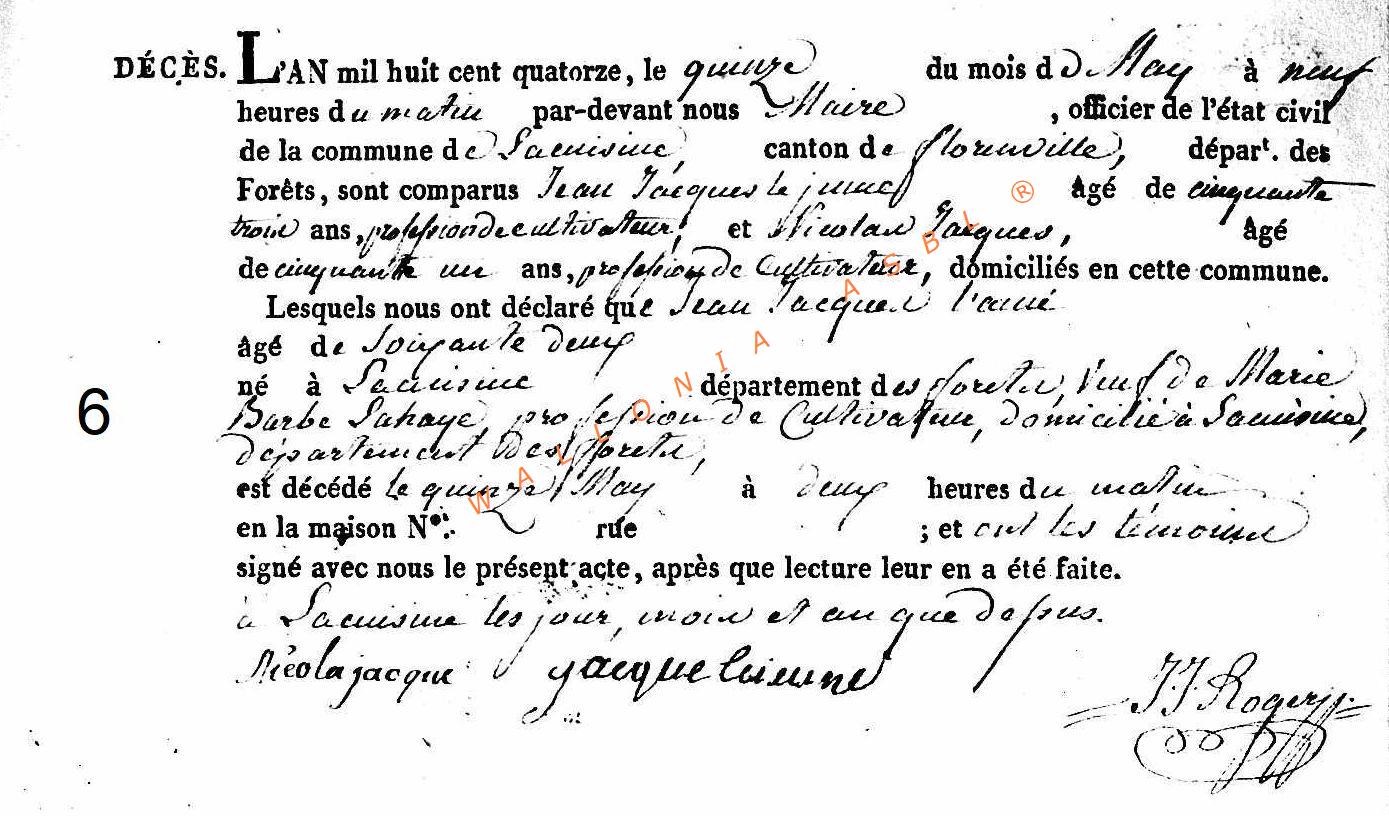 DÉCÈS. L'AN mil huit cent quatorze, le quinze du mois de May à neuf
heures du matin par-devant nous Maire , officier de l'état civil
de la commune de Lacuisine, canton de florenville, départ. des
Forêts, sont comparus Jean Jacques le jeune âgé de cinquante
trois ans, profession de cultivateur, et Nicolas Jacques, âgé
de cinquante un ans, profession de Cultivateur, domiciliés en cette commune.
Lesquels nous ont déclaré que Jean Jacques l'ainé
âgé de soixante deux
né à Lacuisine département des forets, veuf de Marie
6
Barbe Lahaye, profession de Cultivateur, domicilié à Lacuisine,
département des forets,
est décédé le quinze May à deux heures du matin
en la maison N° rue ; et ont les témoins
signé avec nous le présent acte, après que lecture leur en a été faite.
à Lacuisine les jour, mois et an que dessus.
Nicola jacque jacque leieune J.J. Rogery
WALLONIA ASBL ®